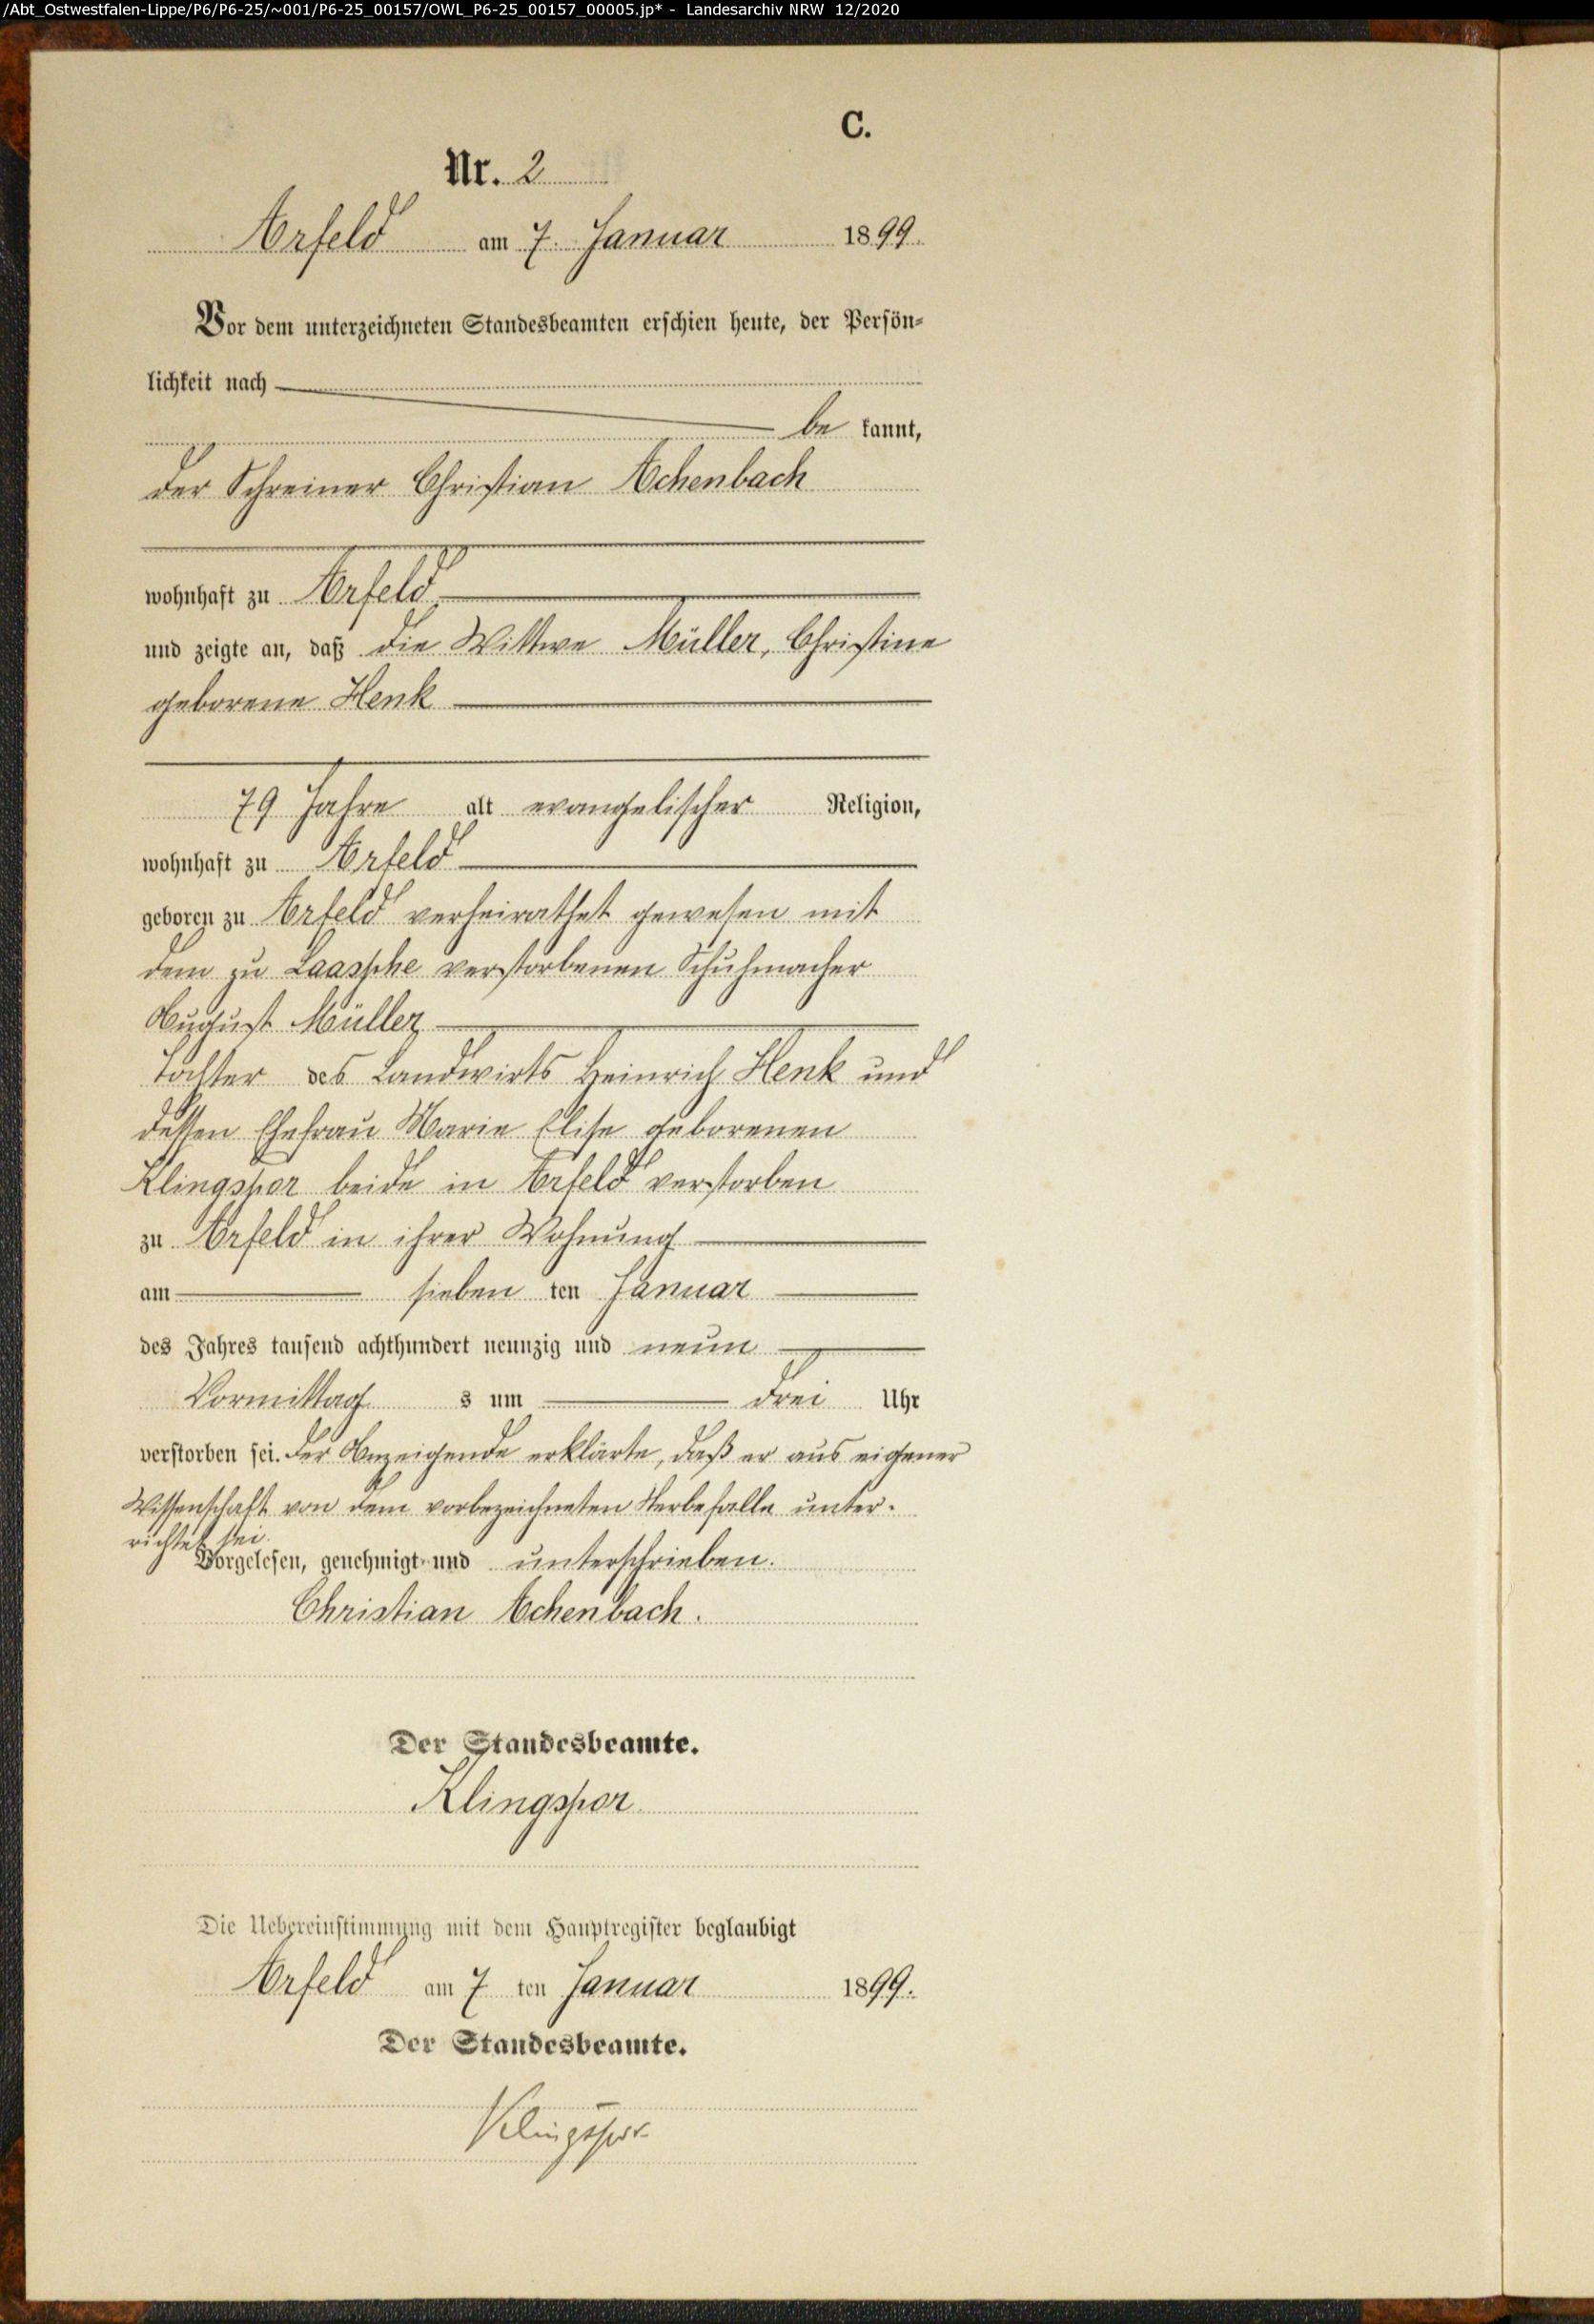 /Abt_Ostwestfalen-Lippe/P6/P6-25/~001/P6-25_00157/OWL_P6-25_00157_00005.jp* - Landesarchiv NRW 12/2020
C.
Nr. 2
Arfeld am 7. Januar 1899.
Vor dem unterzeichneten Standesbeamten erschien heute, der Persön-
lichkeit nach
be kannt,
der Schreiner Christian Achenbach
wohnhaft zu Arfeld
und zeigte an, daß die Wittwe Müller, Christine
geborene Henk
79 Jahre alt evangelischer Religion,
wohnhaft zu Arfeld
geboren zu Arfeld verheirathet gewesen mit
dem zu Laasphe verstorbenen Schuhmacher
August Müller
Tochter des Landwirts Heinrich Henk und
dessen Ehefrau Marie Elise geborenen
Klingspor beide in Arfeld verstorben
zu Arfeld in ihrer Wohnung
am sieben ten Januar
des Jahres tausend achthundert neunzig und neun
Vormittag s um drei Uhr
verstorben sei. Der Anzeigende erklärte, daß er aus eigener
Wissenschaft von dem vorbezeichneten Sterbefalle unter-
richtet sei.
Vorgelesen, genehmigt und unterschrieben.
Christian Achenbach.
Der Standesbeamte.
Klingspor
Die Uebereinstimmung mit dem Hauptregister beglaubigt
Arfeld am 7 ten Januar 1899.
Der Standesbeamte.
Klingspor